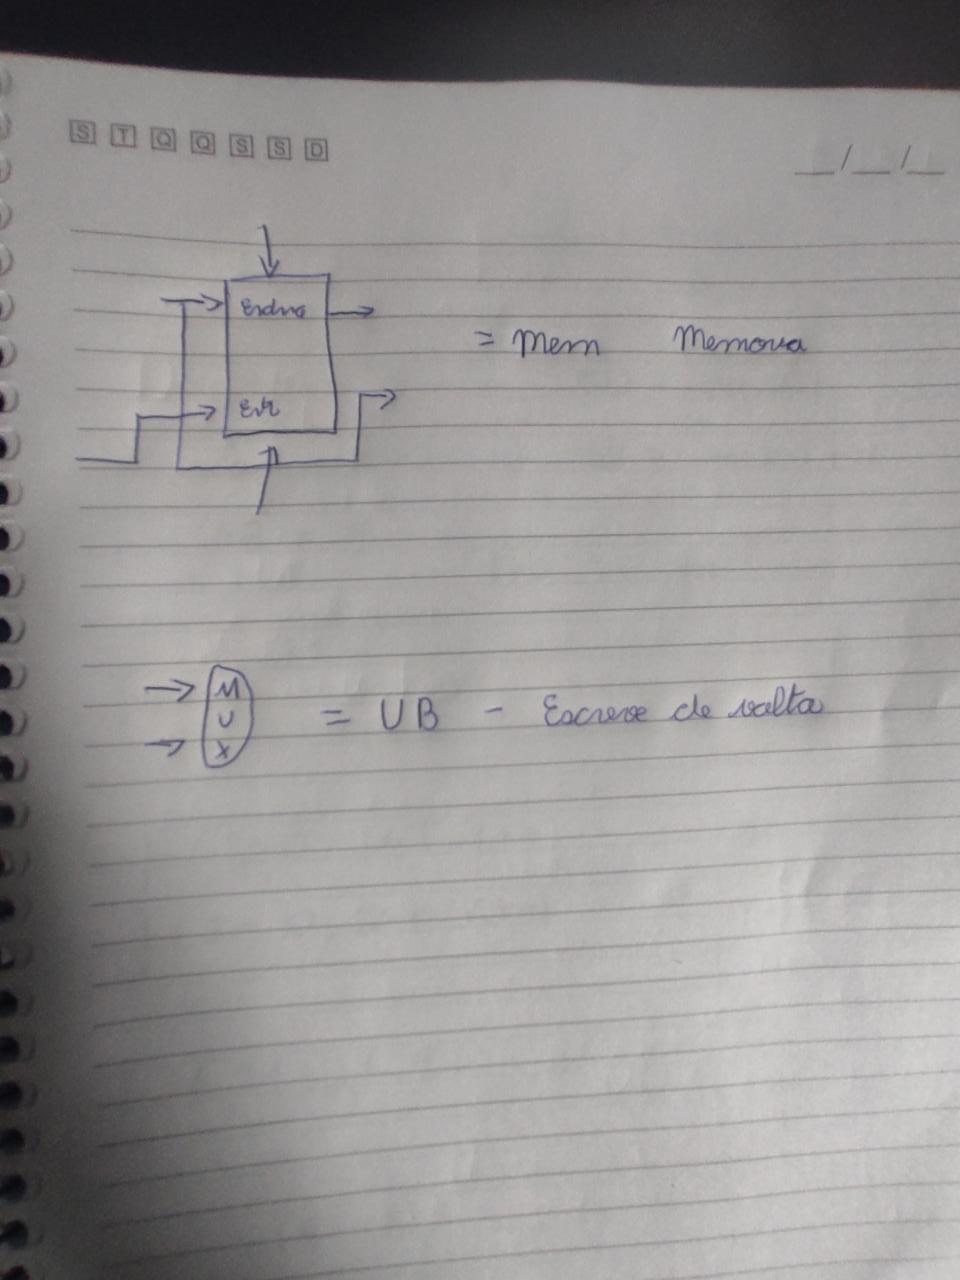 S T Q Q S S D
__/__/__
= Mem Memoria
M
U
X
= UB - Escreve de volta